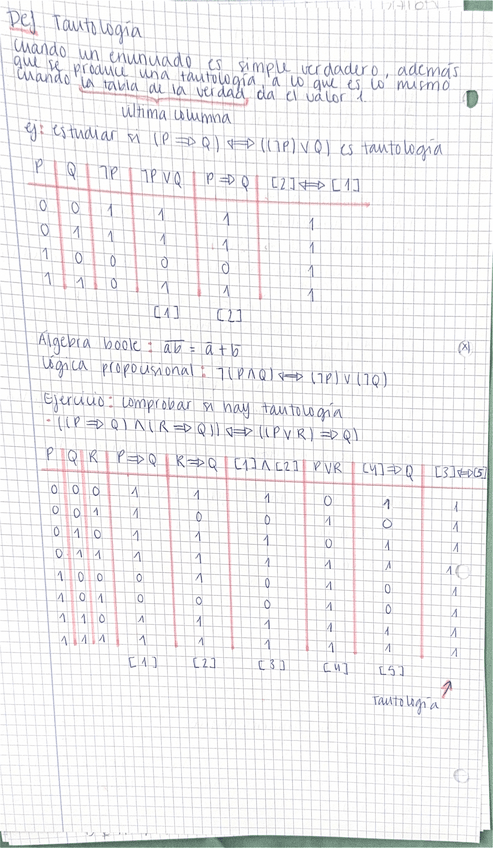 Def Tautología
cuando un enunuado es simple verdadero, además
que se produce una tautología a lo que es lo mismo
cuando la tabla de la verdad da el valor 1
última columna
ej: estudiar si (P ⇒ Q) ⇔ ((⅂P) ∨ Q) es tautología
P Q ⅂P ⅂P ∨ Q P ⇒ Q [2] ⇔ [1]
0 0 1 1 1 1
0 1 1 1 1 1
1 0 0 0 0 1
1 1 0 1 1 1
[1] [2]
Álgebra boole: a̅b̅ = a̅ + b̅ (x)
lógica proposisional: ⅂(P∧Q) ⇔ (⅂P) ∨ (⅂Q)
Ejercicio: comprobar si hay tautología
- ((P ⇒ Q) ∧ (R ⇒ Q)) ⇔ ((P ∨ R) ⇒ Q)
P Q R P ⇒ Q R ⇒ Q [1] ∧ [2] P ∨ R [4] ⇒ Q [3] ⇔ [5]
0 0 0 1 1 1 0 1 1
0 0 1 1 0 0 1 0 1
0 1 0 1 1 1 0 1 1
0 1 1 1 1 1 1 1 1
1 0 0 0 1 0 1 0 1
1 0 1 0 0 0 1 0 1
1 1 0 1 1 1 1 1 1
1 1 1 1 1 1 1 1 1
[1] [2] [3] [4] [5]
Tautología